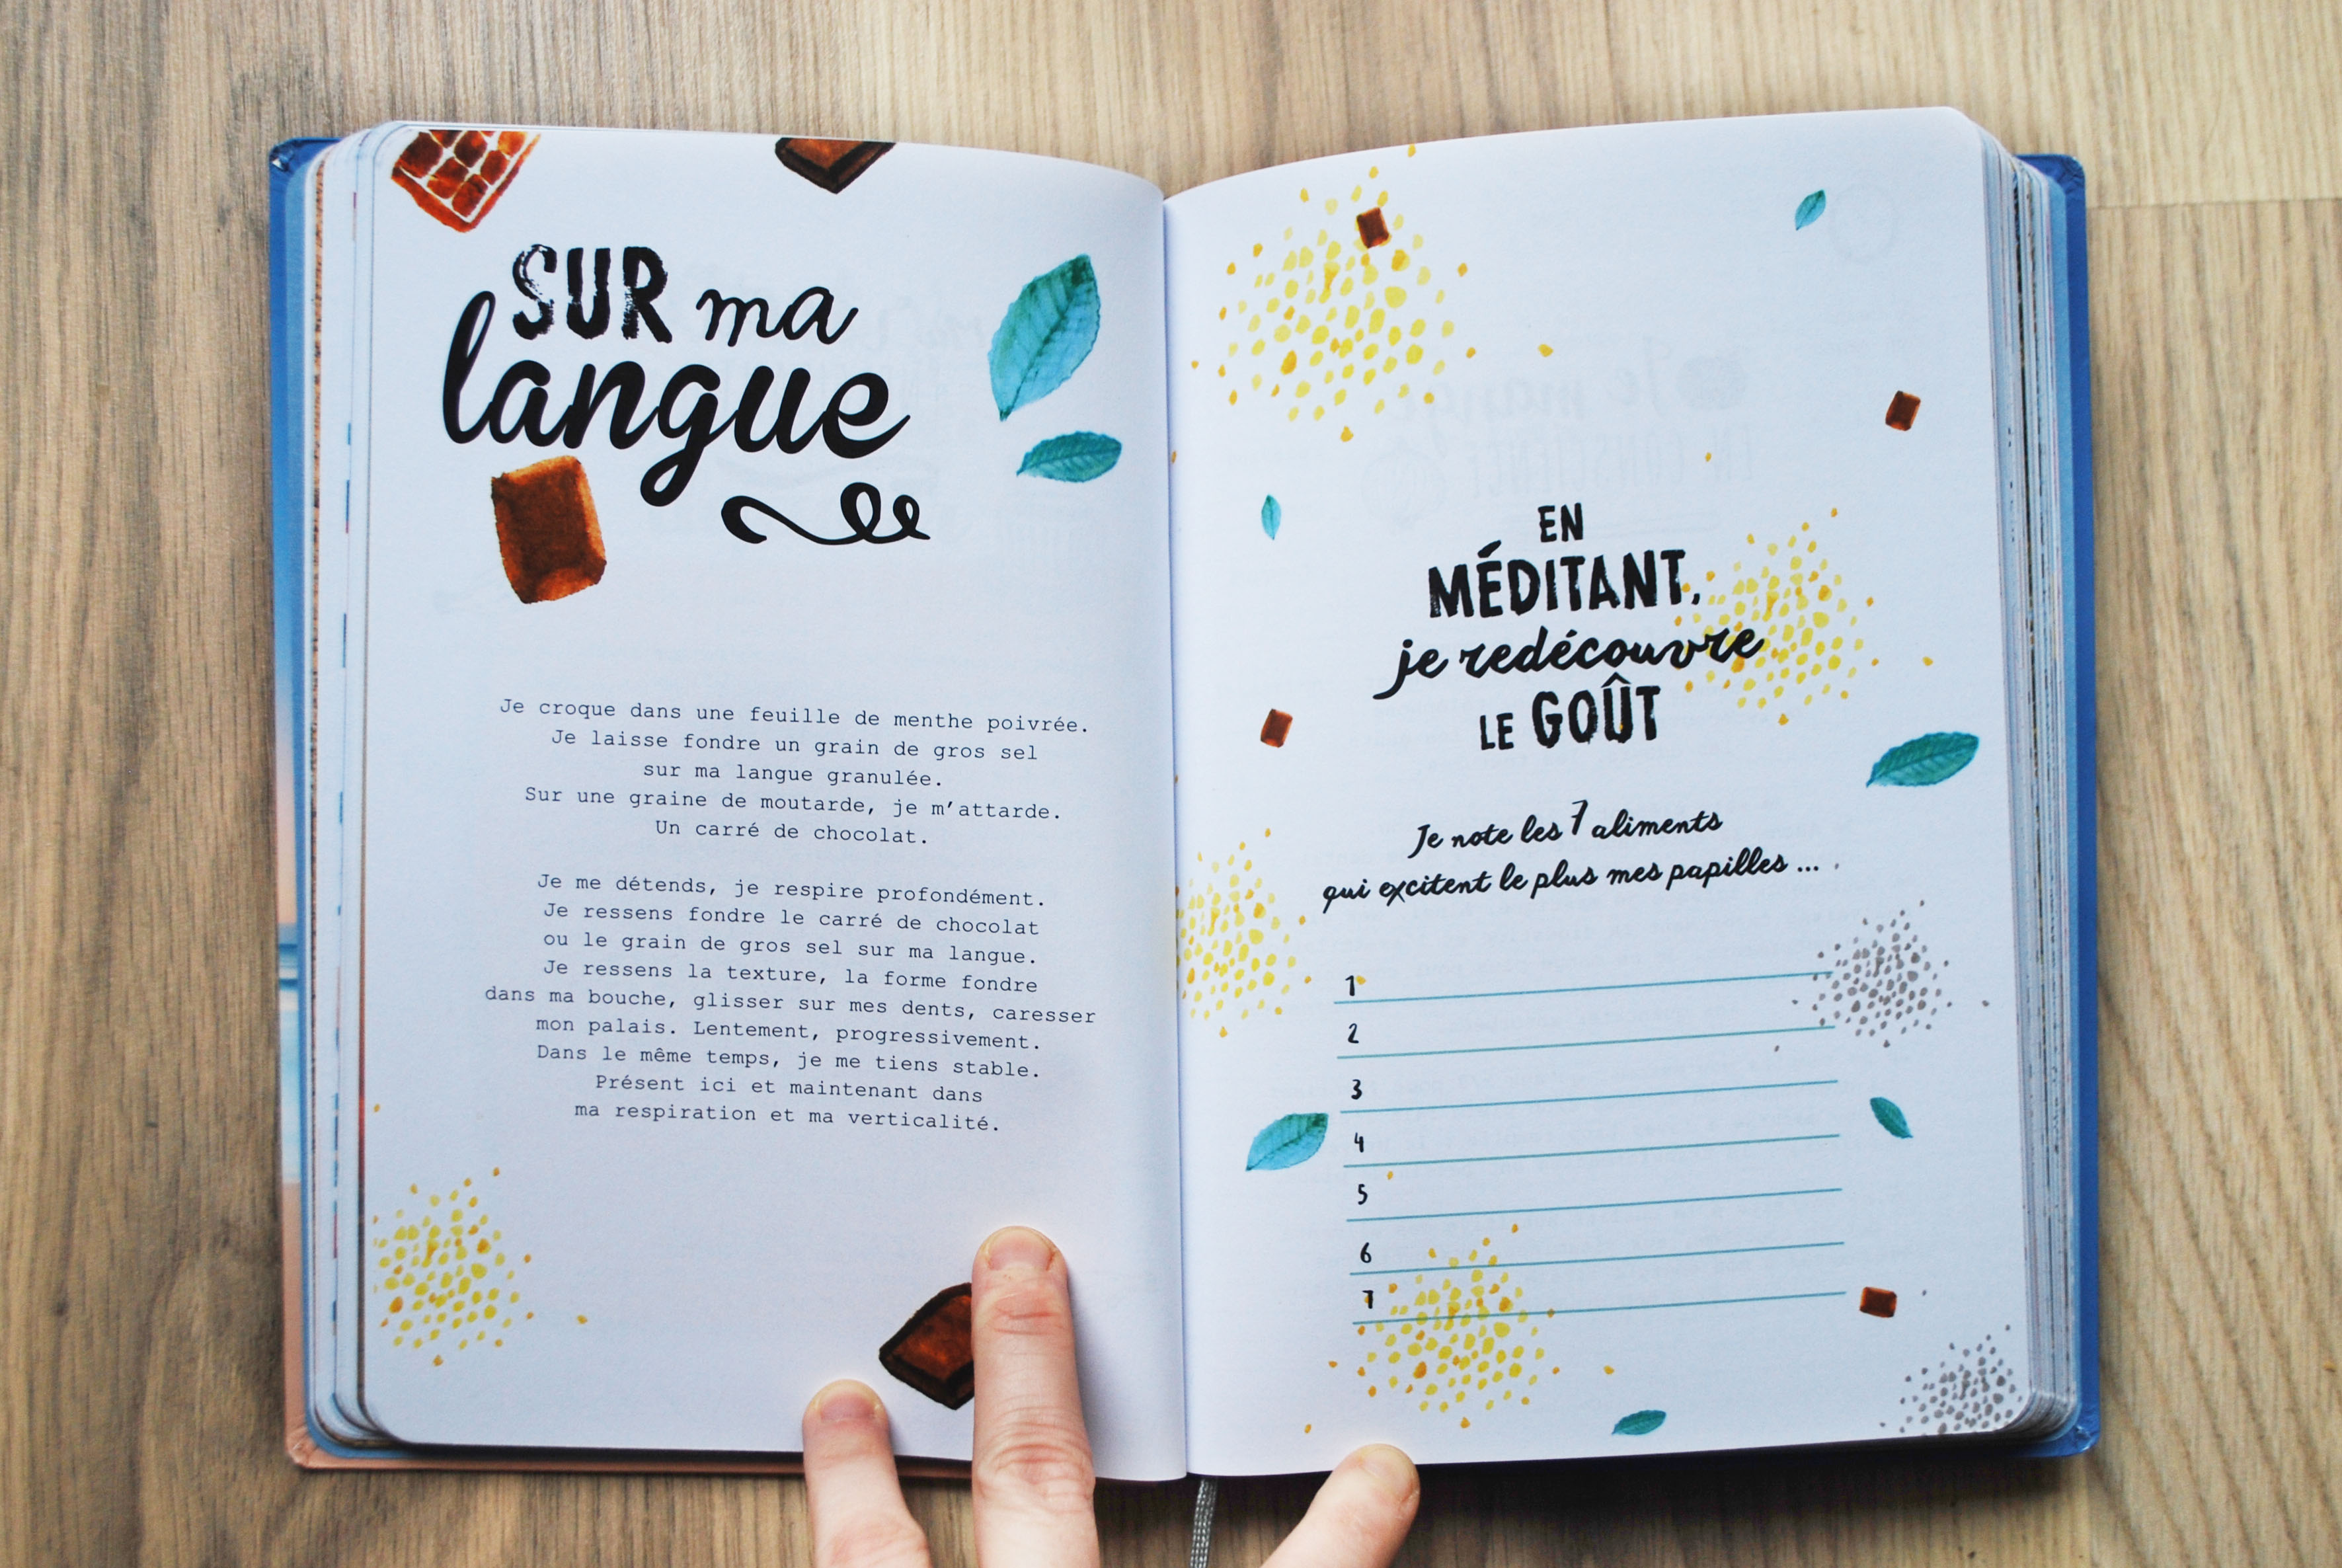 SUR ma
langue
Je croque dans une feuille de menthe poivrée.
Je laisse fondre un grain de gros sel
sur ma langue granulée.
Sur une graine de moutarde, je m'attarde.
Un carré de chocolat.
Je me détends, je respire profondément.
Je ressens fondre le carré de chocolat
ou le grain de gros sel sur ma langue.
Je ressens la texture, la forme fondre
dans ma bouche, glisser sur mes dents, caresser
mon palais. Lentement, progressivement.
Dans le même temps, je me tiens stable.
Présent ici et maintenant dans
ma respiration et ma verticalité.
EN
MÉDITANT,
je redécouvre
LE GOÛT
Je note les 7 aliments
qui excitent le plus mes papilles ...
1
2
3
4
5
6
7